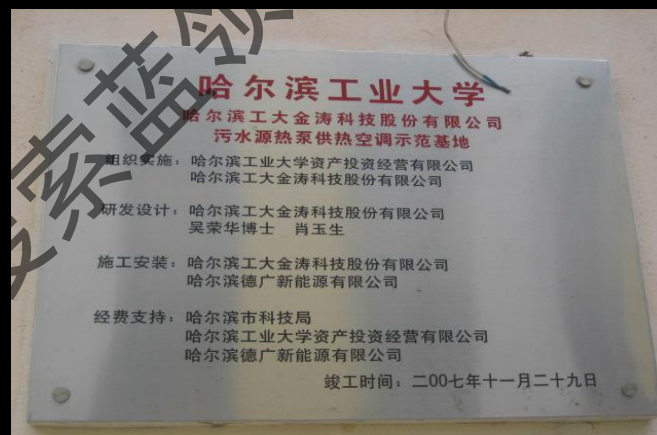 哈尔滨工业大学
哈尔滨工大金涛科技股份有限公司
污水源热泵供热空调示范基地
组织实施：哈尔滨工业大学资产投资经营有限公司
哈尔滨工大金涛科技股份有限公司
研发设计：哈尔滨工大金涛科技股份有限公司
吴荣华博士 肖玉生
施工安装：哈尔滨工大金涛科技股份有限公司
哈尔滨德广新能源有限公司
经费支持：哈尔滨市科技局
哈尔滨工业大学资产投资经营有限公司
哈尔滨德广新能源有限公司
竣工时间：二00七年十一月二十九日
索蓝领